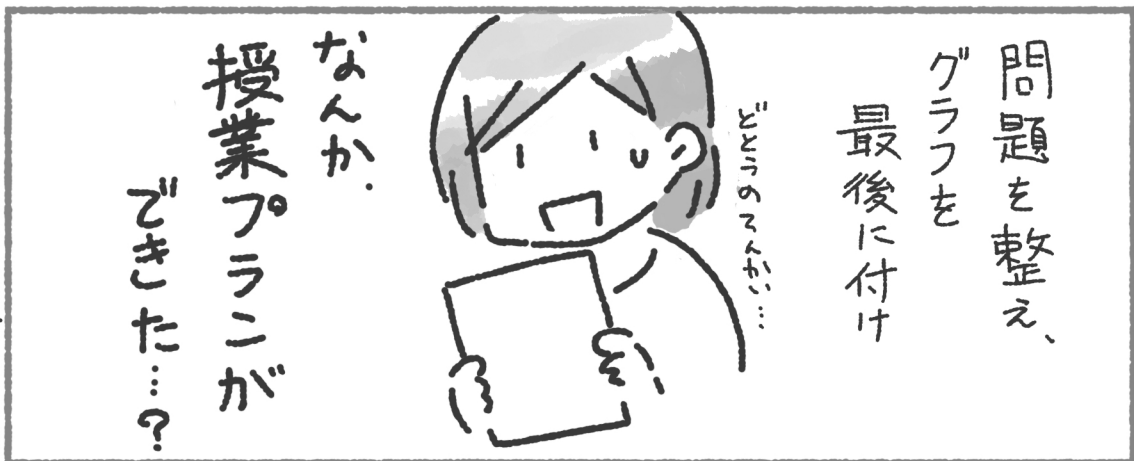 問題を整え、
グラフを
最後に付け
どとうのてんかい…
なんか、
授業プランが
できた…?